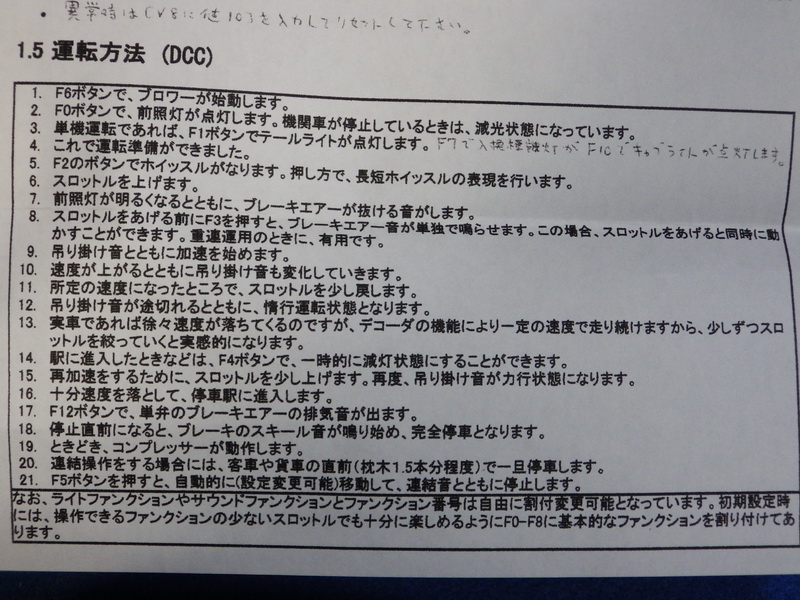 • 異常時はCV8に値103を入力してリセットして下さい。
1.5 運転方法 (DCC)
1. F6ボタンで、ブロワーが始動します。
2. F0ボタンで、前照灯が点灯します。機関車が停止しているときは、減光状態になっています。
3. 単機運転であれば、F1ボタンでテールライトが点灯します。F7で入換標識灯がF10でキャブライトが点灯します。
4. これで運転準備ができました。
5. F2のボタンでホイッスルがなります。押し方で、長短ホイッスルの表現を行います。
6. スロットルを上げます。
7. 前照灯が明るくなるとともに、ブレーキエアーが抜ける音がします。
8. スロットルをあげる前にF3を押すと、ブレーキエアー音が単独で鳴らせます。この場合、スロットルをあげると同時に動
かすことができます。重連運用のときに、有用です。
9. 吊り掛け音とともに加速を始めます。
10. 速度が上がるとともに吊り掛け音も変化していきます。
11. 所定の速度になったところで、スロットルを少し戻します。
12. 吊り掛け音が途切れるとともに、惰行運転状態となります。
13. 実車であれば徐々速度が落ちてくるのですが、デコーダの機能により一定の速度で走り続けますから、少しずつスロ
ットルを絞っていくと実感的になります。
14. 駅に進入したときなどは、F4ボタンで、一時的に減灯状態にすることができます。
15. 再加速をするために、スロットルを少し上げます。再度、吊り掛け音が力行状態になります。
16. 十分速度を落として、停車駅に進入します。
17. F12ボタンで、単弁のブレーキエアーの排気音が出ます。
18. 停止直前になると、ブレーキのスキール音が鳴り始め、完全停車となります。
19. ときどき、コンプレッサーが動作します。
20. 連結操作をする場合には、客車や貨車の直前(枕木1.5本分程度)で一旦停車します。
21. F5ボタンを押すと、自動的に(設定変更可能)移動して、連結音とともに停止します。
なお、ライトファンクションやサウンドファンクションとファンクション番号は自由に割付変更可能となっています。初期設定時
には、操作できるファンクションの少ないスロットルでも十分に楽しめるようにF0-F8に基本的なファンクションを割り付けてあ
ります。